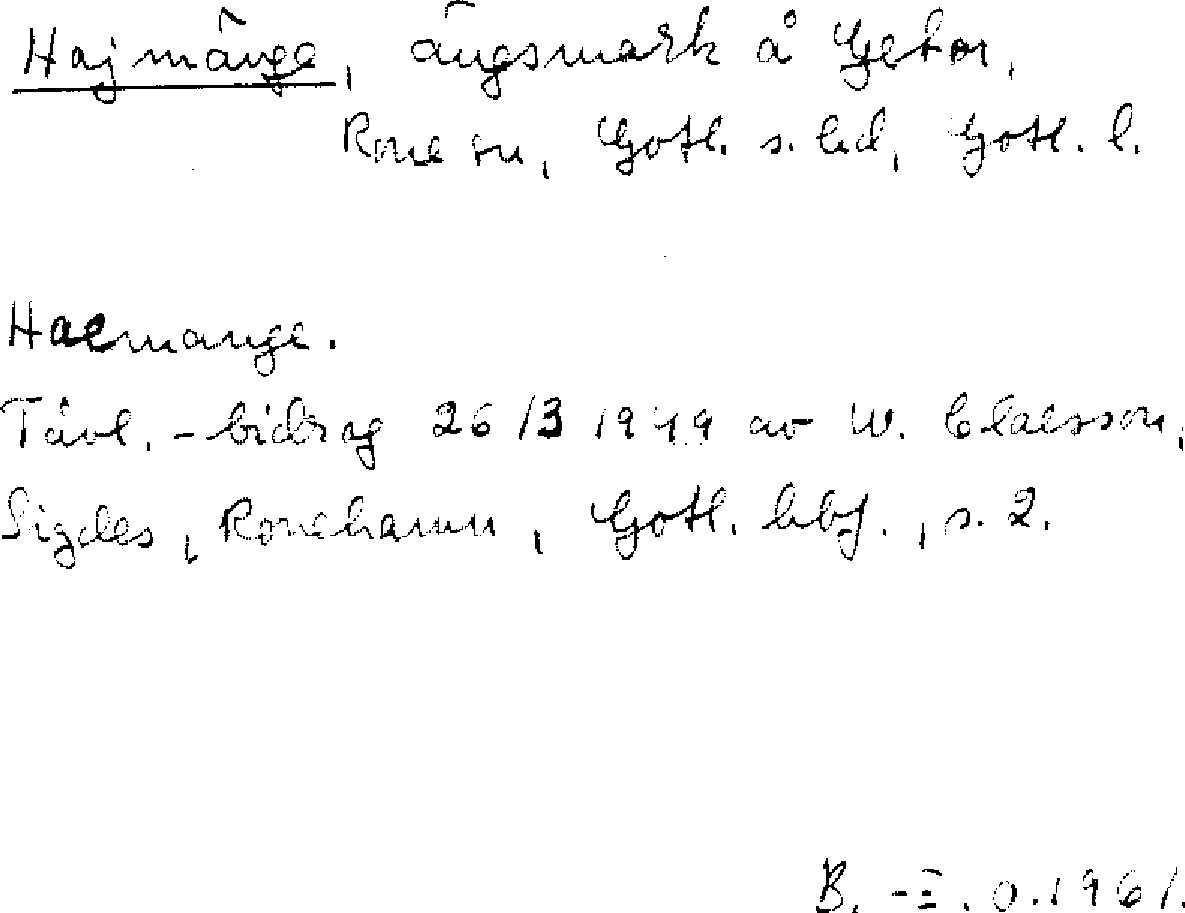 Hajmänge, ängsmark å Getor,
Rone sn, Gotl. s. hd, Gotl. l.
Haemange.
Tävl.-bidrag 26/3 1949 av W. Claesson,
Sigdes, Ronehamn, Gotl. hbf., s. 2.
B. -E. O. 1961.